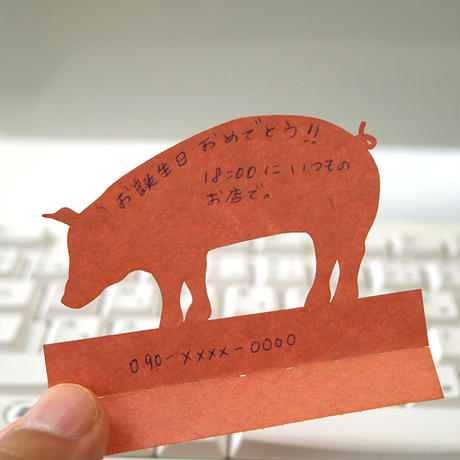 お誕生日 おめでとう!!
18:00に いつもの
お店で。
090-××××-0000